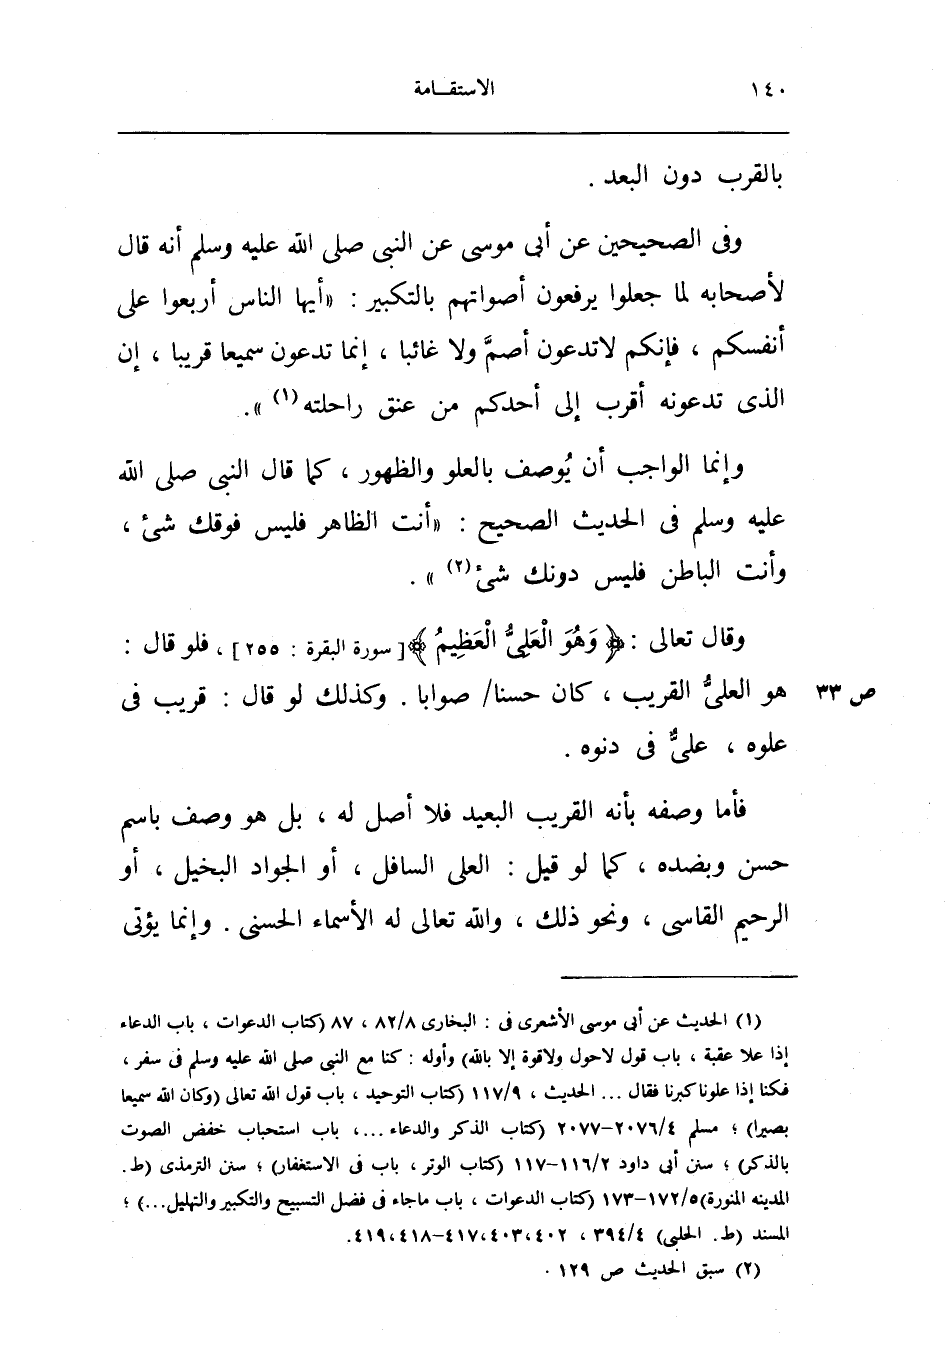 ١٤٠ الاستقـامة
بالقرب دون البعد .
وفى الصحيحين عن أبى موسى عن النبى صلى الله عليه وسلم أنه قال
لأصحابه لما جعلوا يرفعون أصواتهم بالتكبير : «أيها الناس أربعوا على
أنفسكم ، فإنكم لاتدعون أصمَّ ولا غائبا ، إنما تدعون سميعا قريبا ، إن
الذى تدعونه أقرب إلى أحدكم من عنق راحلته (١) ».
وإنما الواجب أن يُوصف بالعلو والظهور ، كما قال النبى صلى الله
عليه وسلم فى الحديث الصحيح : «أنت الظاهر فليس فوقك شئ ،
وأنت الباطن فليس دونك شئ (٢) » .
وقال تعالى : ﴿ وَهُوَ الْعَلِىُّ الْعَظِيمُ ﴾ [ سورة البقرة : ٢٥٥ ] ، فلو قال :
هو العلىُّ القريب ، كان حسنا/ صوابا . وكذلك لو قال : قريب فى ص ٣٣
علوه ، علىٌّ فى دنوه .
فأما وصفه بأنه القريب البعيد فلا أصل له ، بل هو وصف باسم
حسن وبضده ، كما لو قيل : العلى السافل ، أو الجواد البخيل ، أو
الرحيم القاسى ، ونحو ذلك ، والله تعالى له الأسماء الحسنى . وإنما يؤتى
(١) الحديث عن أبى موسى الأشعرى فى : البخارى ٨٢/٨ ، ٨٧ (كتاب الدعوات ، باب الدعاء
إذا علا عقبة ، باب قول لاحول ولاقوة إلا بالله) وأوله : كنا مع النبى صلى الله عليه وسلم فى سفر ،
فكنا إذا علونا كبرنا فقال ... الحديث ، ١١٧/٩ (كتاب التوحيد ، باب قول الله تعالى (وكان الله سميعا
بصيرا) ؛ مسلم ٢٠٧٦/٤-٢٠٧٧ (كتاب الذكر والدعاء ...، باب استحباب خفض الصوت
بالذكر) ؛ سنن أبى داود ١١٦/٢-١١٧ (كتاب الوتر ، باب فى الاستغفار) ؛ سنن الترمذى (ط.
المدينه المنورة)١٧٢/٥-١٧٣ (كتاب الدعوات ، باب ماجاء فى فضل التسبيح والتكبير والتهليل...) ؛
المسند (ط. الحلبى) ٣٩٤/٤ ، ٤٠٢،٤٠٣،٤١٧-٤١٨،٤١٩.
(٢) سبق الحديث ص ١٢٩ .